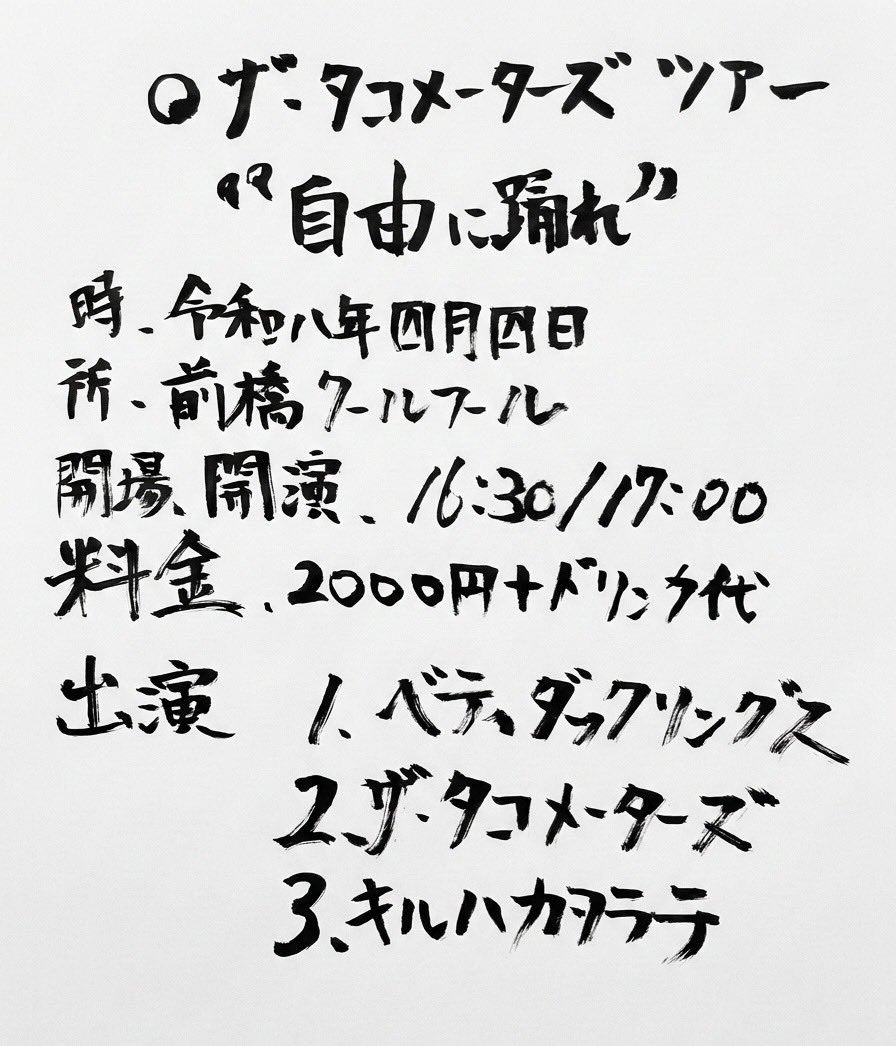 ○ザ・タコメーターズ ツアー
“自由に踊れ”
時、令和八年四月四日
所、前橋クールフール
開場、開演、16:30/17:00
料金、2000円+ドリンク代
出演 1、ベティダックリングス
2、ザ・タコメーターズ
3、キルハカヲラテ